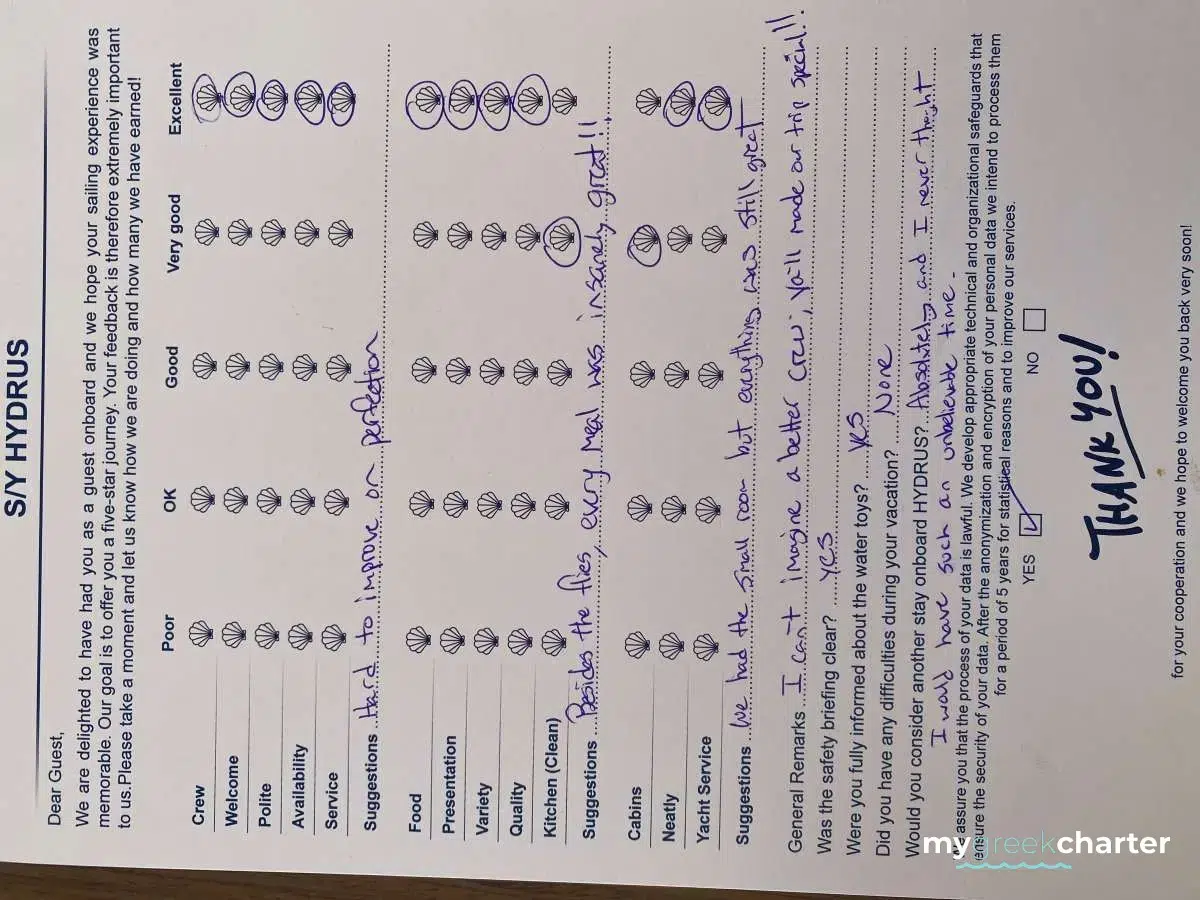 S/Y HYDRUS
Dear Guest,
We are delighted to have had you as a guest onboard and we hope your sailing experience was
memorable. Our goal is to offer you a five-star journey. Your feedback is therefore extremely important
to us.Please take a moment and let us know how we are doing and how many we have earned!
Poor OK Good Very good Excellent
Crew
Welcome
Polite
Availability
Service
Suggestions Hard to improve on perfection
Food
Presentation
Variety
Quality
Kitchen (Clean)
Suggestions Besides the flies, every meal was insanely great!!
Cabins
Neatly
Yacht Service
Suggestions We had the small room but everything was still great
General Remarks I can't imagine a better crew, ya'll made our trip special!!
Was the safety briefing clear? YES
Were you fully informed about the water toys? YES
Did you have any difficulties during your vacation? None
Would you consider another stay onboard HYDRUS? Absolutely and I never thought
I would have such an unbelievable time.
assure you that the process of your data is lawful. We develop appropriate technical and organizational safeguards that
ensure the security of your data. After the anonymization and encryption of your personal data we intend to process them
for a period of 5 years for statistical reasons and to improve our services.
YES NO
THANK YOU!
for your cooperation and we hope to welcome you back very soon!
mygreekcharter